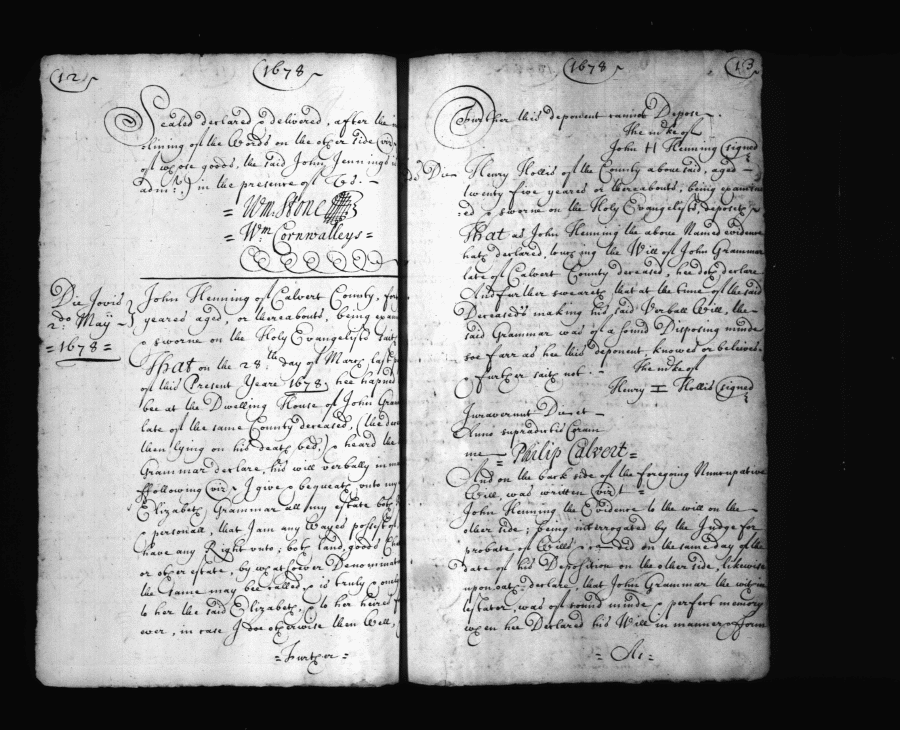 12
1678
Sealed declared & delivered, after the
olining of the Words on the other side (viz
of whose goods, the said John Jennings is
admr,) in the presence of Us. —
= Wm. Stone
= Wm Cornwalleys =
Die Jovis
2do. Maÿ
= 1678 =
John Henning of Calvert County,
yeares aged, or thereabouts, being
& sworne on the Holy Evangelists
That on the 28th day of March last
of this Present Yeare 1678, hee hapned
bee at the Dwelling House of John Gram
late of the same County deceased, (the
then lying on his death bed,) & heard the
Grammar declare, his will verbally in
ffollowing (viz) I give & bequeath unto my
Elizabeth Grammar all my estate both
& personall, that I am any Wayes possest of
have any Right unto, both land, goods
or other estate, by whatsoever Denominat
the same may bee called & is truly & onely
to her the said Elizabeth, & to her heires
ever, in case I doe otherwise then Well,
= Further =
1678
13
Further this deponent cannot Depose —.
The mke of
John H Henning (signed
Die
Henry Hollis of the County abovesaid, aged —
twenty five yeares or thereabouts, being examin
:ed & sworne on the Holy Evangelists, deposeth
That as John Henning the above Named evidence
hath declared, touching the Will of John Grammar
late of Calvert County deceased, hee doth declare
And further sweareth that at the time of the said
Deceaseds making his said Verball Will, the —
said Grammar was of a sound Disposing minde
soe farr as hee this deponent, knowes or believes.
Further saith not : —
The mke of
Henry I Hollis (signed
Juraverunt Die et —
Anno supradictis Coram
me — = Philip Calvert =
And on the back side of the foregoing Nuncupative
Will, was written (viz)
John Henning the Evidence to the will on the —
other side; being interrogated by the Judge for
probate of Wills — did on the same day of the
Date of his Deposition on the other side, likewise
upon oath declare, that John Grammar the within
testator, was of sound minde & perfect memory
when hee Declared his Will in manner & form
= As =